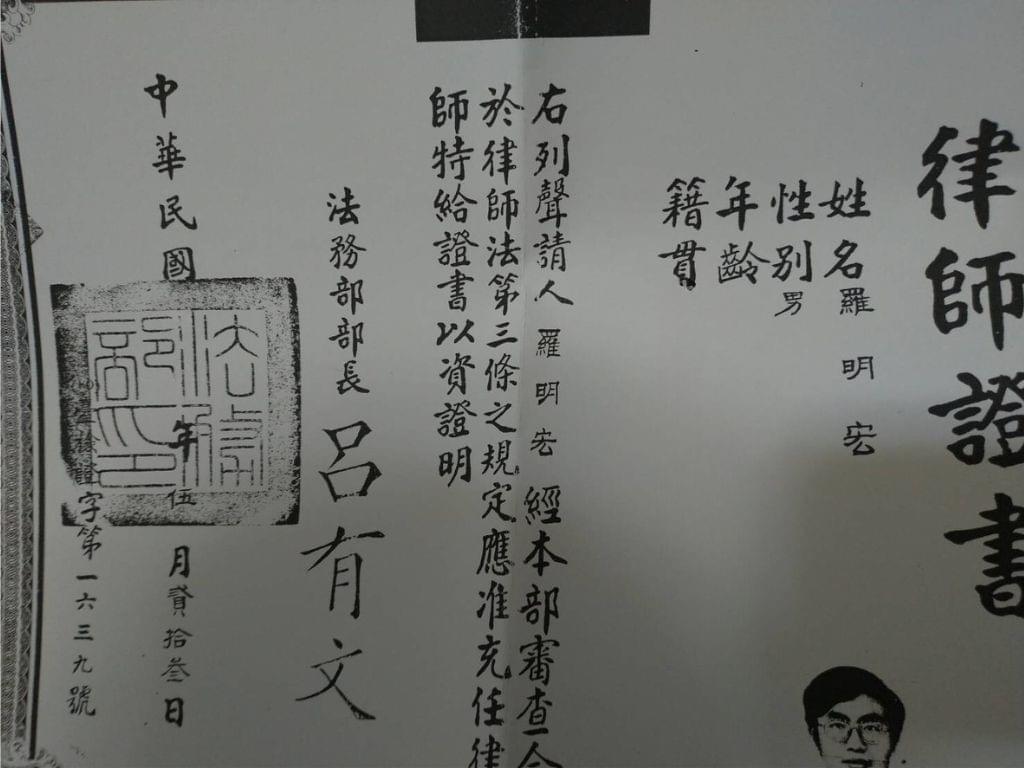 律師證書
姓名羅明宏
性別男
年齡
籍貫
右列聲請人羅明宏經本部審查合
於律師法第三條之規定應准充任律
師特給證書以資證明
法務部部長呂有文
中華民國年伍月貳拾叁日
檢證字第一六三九號
法務部印